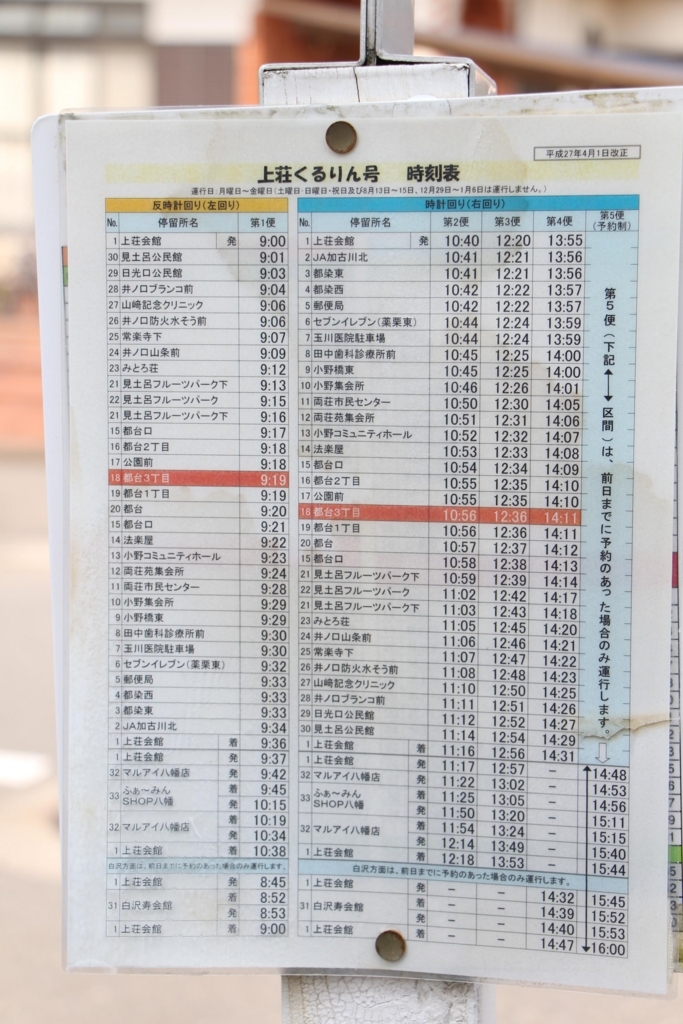 平成27年4月1日改正
上荘くるりん号 時刻表
運行日:月曜日~金曜日(土曜日・日曜日・祝日及び8月13日~15日、12月29日~1月6日は運行しません。)
反時計回り(左回り)
No. 停留所名 第1便
1 上荘会館 発 9:00
30 見土呂公民館 9:01
29 日光口公民館 9:03
28 井ノロブランコ前 9:04
27 山﨑記念クリニック 9:06
26 井ノ口防火水そう前 9:06
25 常楽寺下 9:07
24 井ノ口山条前 9:09
23 みとろ荘 9:12
21 見土呂フルーツパーク下 9:13
22 見土呂フルーツパーク 9:15
21 見土呂フルーツパーク下 9:16
15 都台口 9:17
16 都台2丁目 9:18
17 公園前 9:18
18 都台3丁目 9:19
19 都台1丁目 9:19
20 都台 9:20
15 都台口 9:21
14 法楽屋 9:22
13 小野コミュニティホール 9:23
12 両荘苑集会所 9:24
11 両荘市民センター 9:28
10 小野集会所 9:29
9 小野橋東 9:29
8 田中歯科診療所前 9:30
7 玉川医院駐車場 9:30
6 セブンイレブン(薬栗東) 9:32
5 郵便局 9:33
4 都染西 9:33
3 都染東 9:33
2 JA加古川北 9:34
1 上荘会館 着 9:36
1 上荘会館 発 9:37
32 マルアイ八幡店 発 9:42
33 ふぁ~みんSHOP八幡 着 9:45
発 10:15
32 マルアイ八幡店 着 10:19
発 10:34
1 上荘会館 着 10:38
白沢方面は、前日までに予約のあった場合のみ運行します。
1 上荘会館 発 8:45
31 白沢寿会館 着 8:52
発 8:53
1 上荘会館 着 9:00
時計回り(右回り)
No. 停留所名 第2便 第3便 第4便 第5便(予約制)
1 上荘会館 発 10:40 12:20 13:55
2 JA加古川北 10:41 12:21 13:56
3 都染東 10:41 12:21 13:56
4 都染西 10:42 12:22 13:57
5 郵便局 10:42 12:22 13:57
6 セブンイレブン(薬栗東) 10:44 12:24 13:59
7 玉川医院駐車場 10:44 12:24 13:59
8 田中歯科診療所前 10:45 12:25 14:00
9 小野橋東 10:45 12:25 14:00
10 小野集会所 10:46 12:26 14:01
11 両荘市民センター 10:50 12:30 14:05
12 両荘苑集会所 10:51 12:31 14:06
13 小野コミュニティホール 10:52 12:32 14:07
14 法楽屋 10:53 12:33 14:08
15 都台口 10:54 12:34 14:09
16 都台2丁目 10:55 12:35 14:10
17 公園前 10:55 12:35 14:10
18 都台3丁目 10:56 12:36 14:11
19 都台1丁目 10:56 12:36 14:11
20 都台 10:57 12:37 14:12
15 都台口 10:58 12:38 14:13
21 見土呂フルーツパーク下 10:59 12:39 14:14
22 見土呂フルーツパーク 11:02 12:42 14:17
21 見土呂フルーツパーク下 11:03 12:43 14:18
23 みとろ荘 11:05 12:45 14:20
24 井ノ口山条前 11:06 12:46 14:21
25 常楽寺下 11:07 12:47 14:22
26 井ノ口防火水そう前 11:08 12:48 14:23
27 山﨑記念クリニック 11:10 12:50 14:25
28 井ノロブランコ前 11:11 12:51 14:26
29 日光口公民館 11:12 12:52 14:27
30 見土呂公民館 11:14 12:54 14:29
1 上荘会館 着 11:16 12:56 14:31
1 上荘会館 発 11:17 12:57 – 14:48
32 マルアイ八幡店 発 11:22 13:02 – 14:53
33 ふぁ~みんSHOP八幡 着 11:25 13:05 – 14:56
発 11:50 13:20 – 15:11
32 マルアイ八幡店 着 11:54 13:24 – 15:15
発 12:14 13:49 – 15:40
1 上荘会館 着 12:18 13:53 – 15:44
白沢方面は、前日までに予約のあった場合のみ運行します。
1 上荘会館 発 – – 14:32 15:45
31 白沢寿会館 着 – – 14:39 15:52
発 – – 14:40 15:53
1 上荘会館 着 – – 14:47 16:00
第5便(下記←→区間)は、前日までに予約のあった場合のみ運行します。